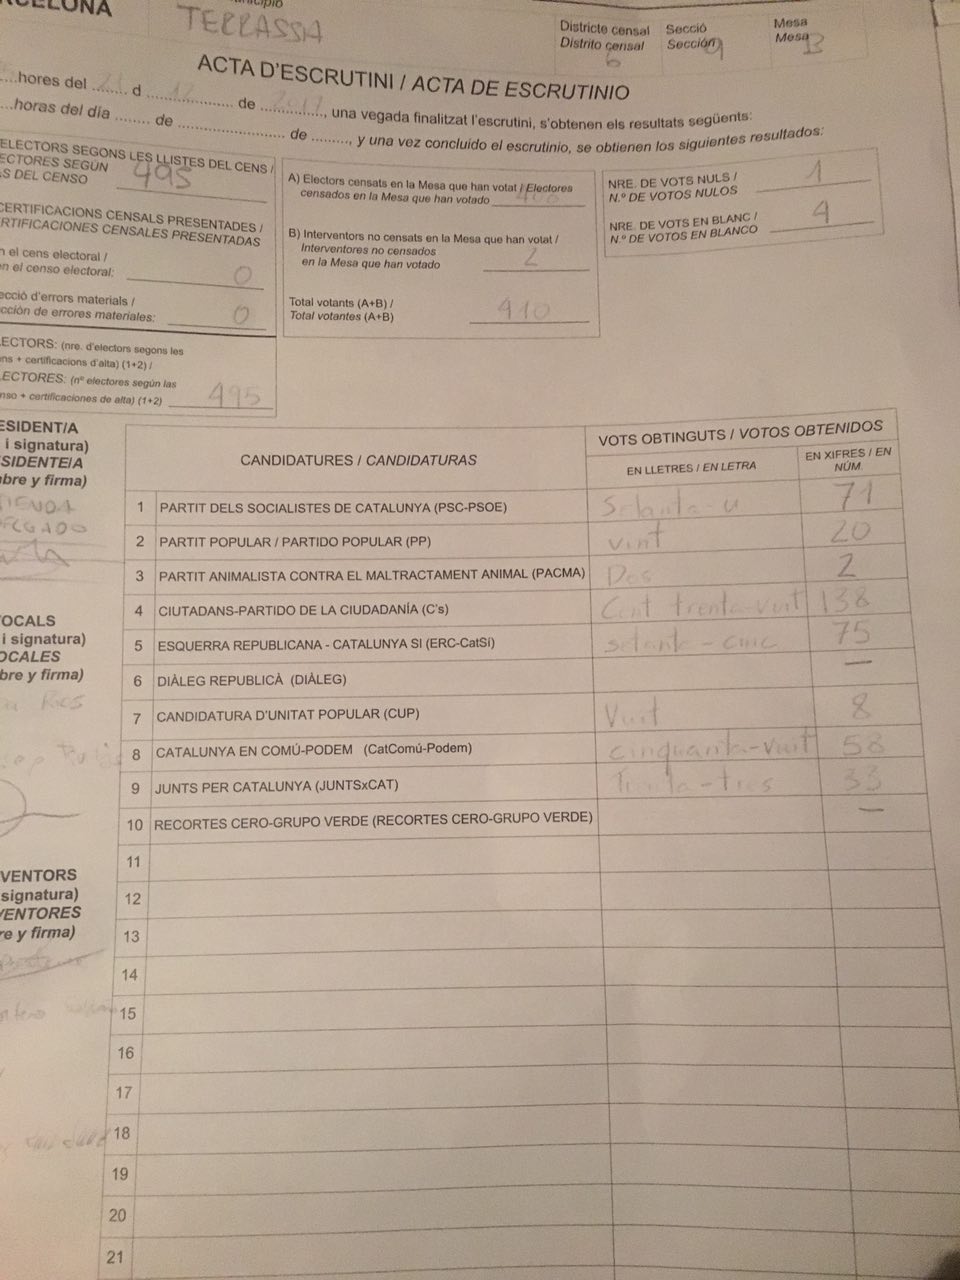 RCELONA
TERRASSA
Districte censal
Distrito censal
6
Secció
Sección
9
Mesa
Mesa
B
ACTA D'ESCRUTINI / ACTA DE ESCRUTINIO
....hores del ........ d .................... de ..............., una vegada finalitzat l'escrutini, s'obtenen els resultats següents:
...horas del día ........ de ......................... de ........., y una vez concluido el escrutinio, se obtienen los siguientes resultados:
ELECTORS SEGONS LES LLISTES DEL CENS /
ECTORES SEGÚN
AS DEL CENSO 495
CERTIFICACIONS CENSALS PRESENTADES /
RTIFICACIONES CENSALES PRESENTADAS
n el cens electoral /
en el censo electoral: 0
ecció d'errors materials /
cción de errores materiales: 0
LECTORS: (nre. d'electors segons les
ens + certificacions d'alta) (1+2) /
LECTORES: (nº electores según las
nso + certificaciones de alta) (1+2) 495
A) Electors censats en la Mesa que han votat / Electores
censados en la Mesa que han votado 408
B) Interventors no censats en la Mesa que han votat /
Interventores no censados
en la Mesa que han votado 2
Total votants (A+B) /
Total votantes (A+B) 410
NRE. DE VOTS NULS /
N.º DE VOTOS NULOS 1
NRE. DE VOTS EN BLANC /
N.º DE VOTOS EN BLANCO 4
ESIDENT/A
i signatura)
SIDENTE/A
mbre y firma)
OCALS
i signatura)
OCALES
bre y firma)
VENTORS
signatura)
VENTORES
re y firma)
CANDIDATURES / CANDIDATURAS
VOTS OBTINGUTS / VOTOS OBTENIDOS
EN LLETRES / EN LETRA
EN XIFRES / EN NÚM.
1 PARTIT DELS SOCIALISTES DE CATALUNYA (PSC-PSOE) Setanta-u 71
2 PARTIT POPULAR / PARTIDO POPULAR (PP) vint 20
3 PARTIT ANIMALISTA CONTRA EL MALTRACTAMENT ANIMAL (PACMA) Dos 2
4 CIUTADANS-PARTIDO DE LA CIUDADANÍA (C's) Cent trenta-vuit 138
5 ESQUERRA REPUBLICANA - CATALUNYA SI (ERC-CatSí) setanta-cinc 75
6 DIÀLEG REPUBLICÀ (DIÀLEG) —
7 CANDIDATURA D'UNITAT POPULAR (CUP) Vuit 8
8 CATALUNYA EN COMÚ-PODEM (CatComú-Podem) cinquanta-vuit 58
9 JUNTS PER CATALUNYA (JUNTSxCAT) Trenta-tres 33
10 RECORTES CERO-GRUPO VERDE (RECORTES CERO-GRUPO VERDE) —
11
12
13
14
15
16
17
18
19
20
21